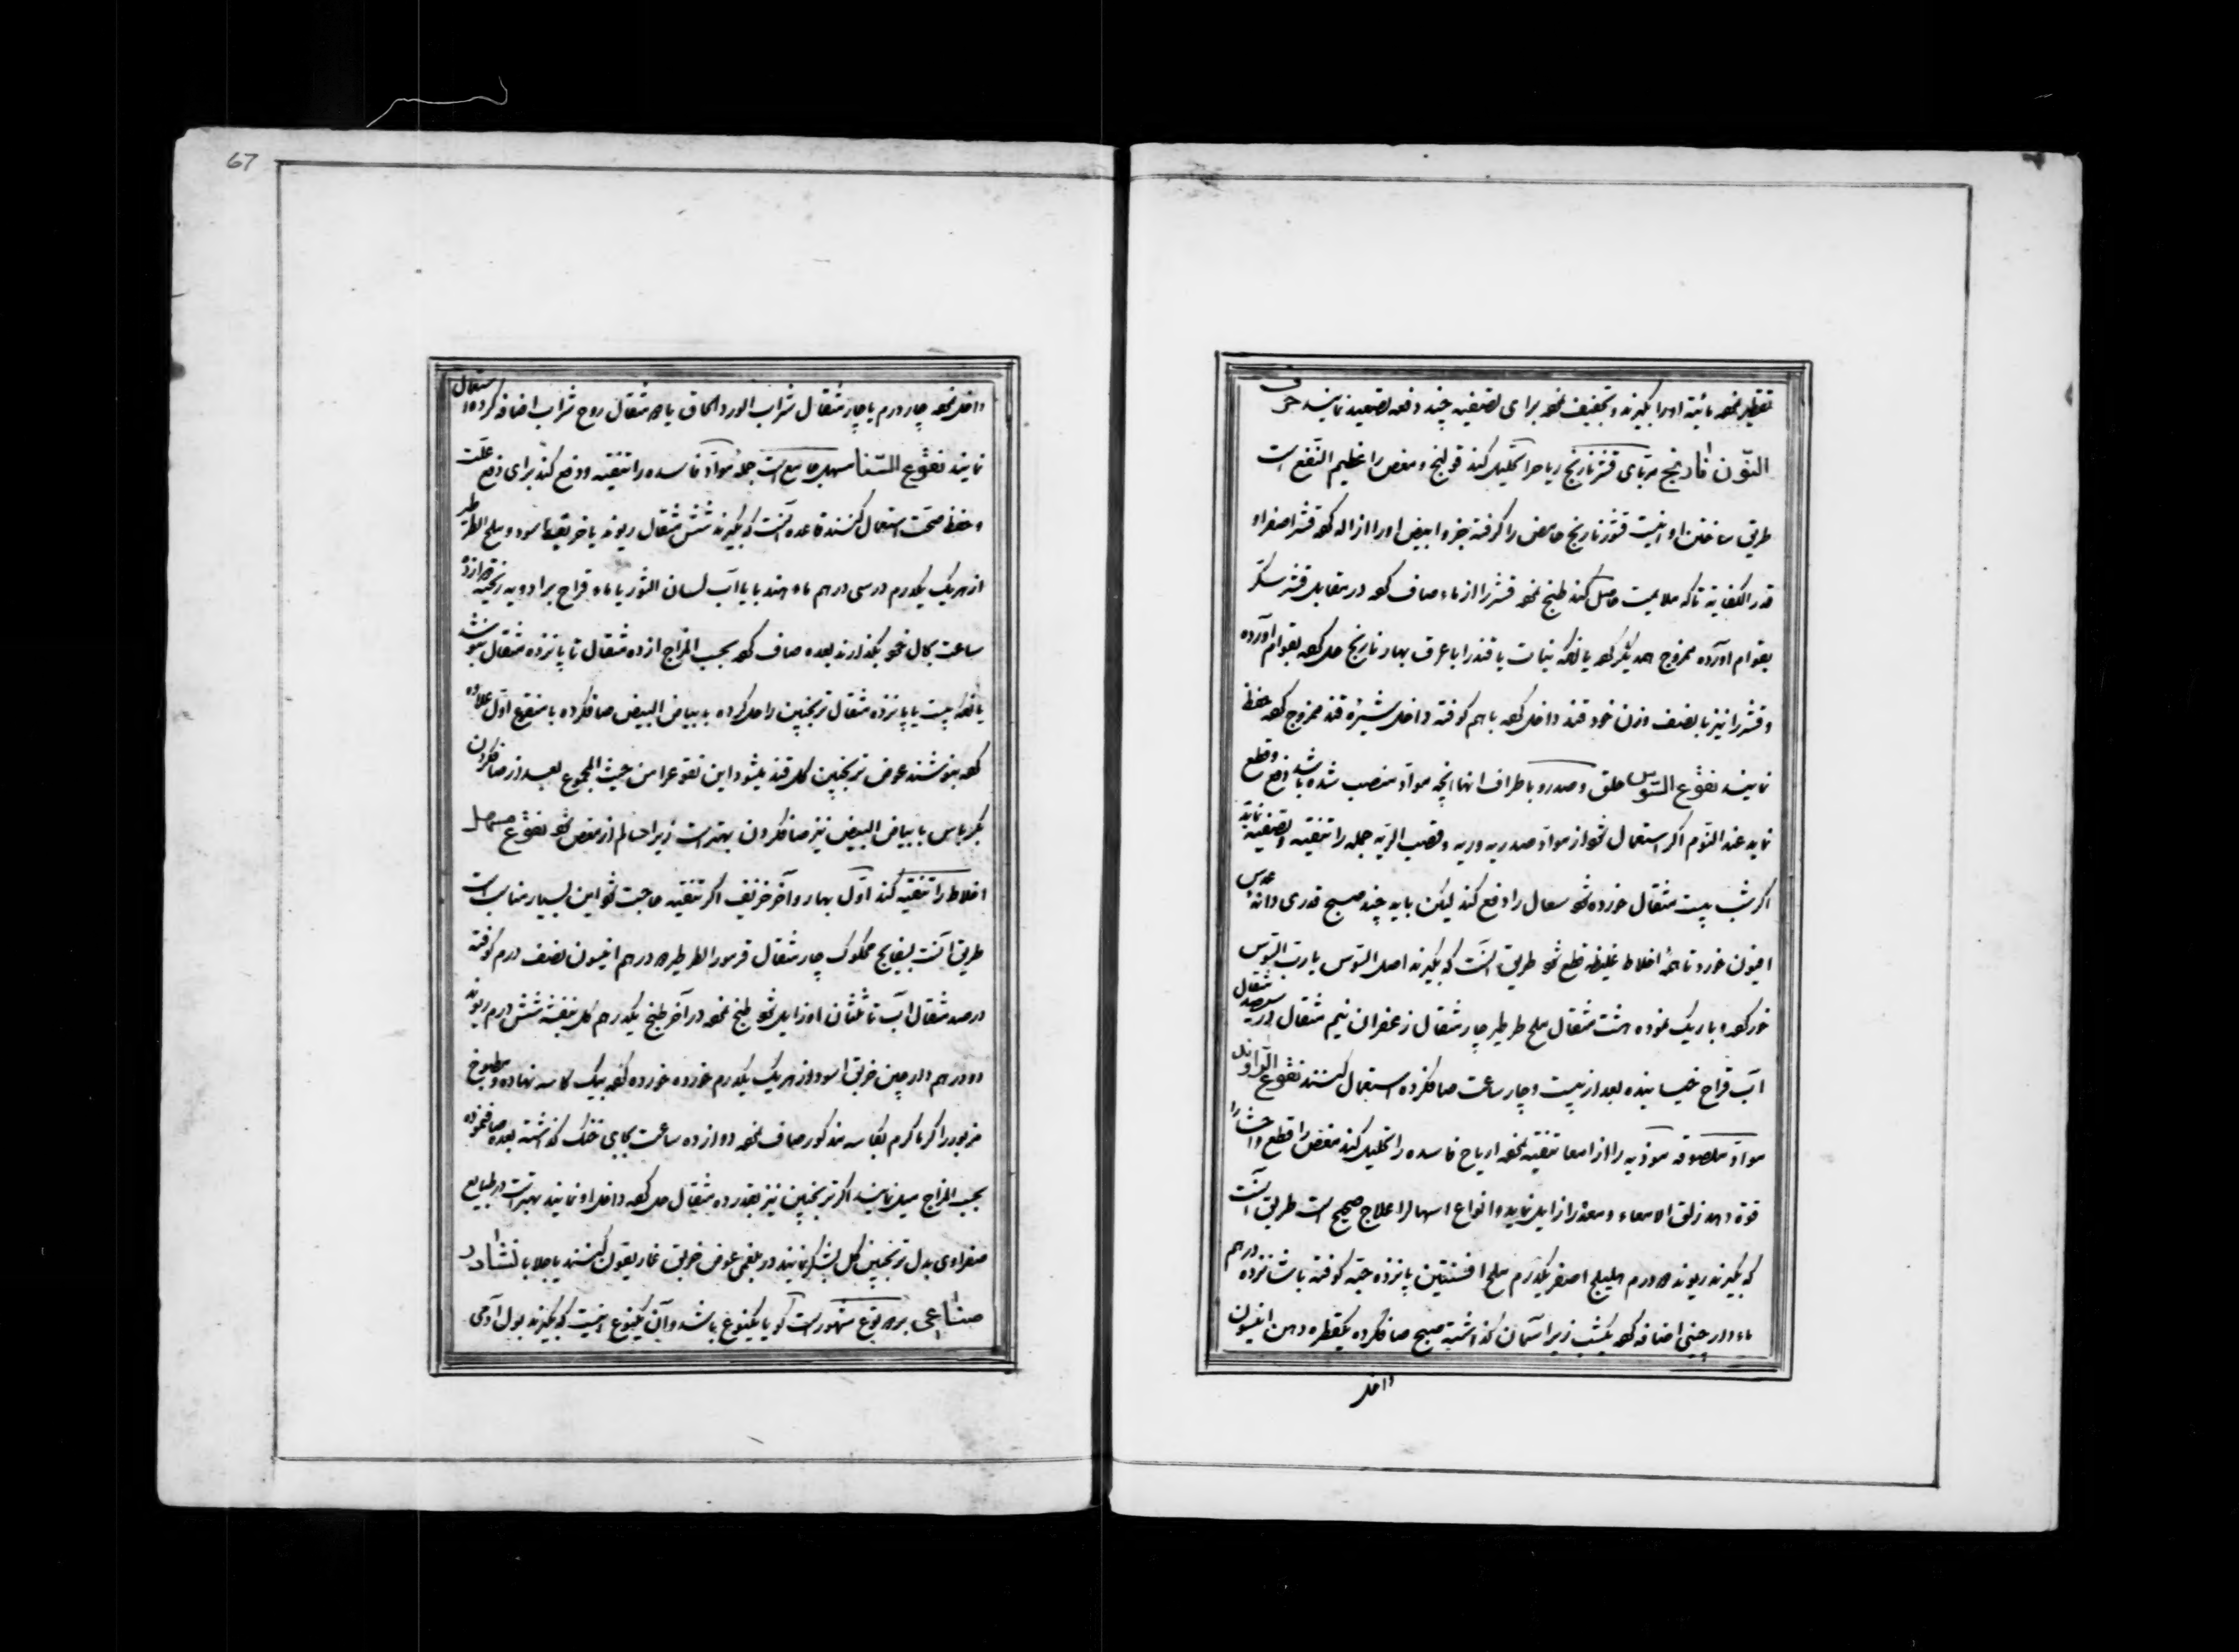 تقطیر نموده مائیته اورا بگیرند و تجفیف نموده برای تصفیه چند دفعه تصعید نمایند حرف
النّون نارنج مربّای قشر نارنج ریاحرا تحلیل کند قولنج و مغص را عظیم النّفع است
طریق ساختن او اینست قشور نارنج حامض را گرفته جزو ابیض اورا ازاله کرده قشر اصفر او
قدر الکفایته تا که ملایمت حاصل کند طبخ نموده قشر را از ماء صاف کرده در مقابل قشر سکّر
بقوام آورده ممزوج همدیگر کرده یا آنکه نبات یا قند را با عرق بهار نارنج حل کرده بقوام آورده
و قشر را نیز با نصف وزن خود قند داخل کرده باهم کوفته داخل شیرهٔ قند ممزوج کرده حفظ
نمایند نقوع السّوس حلق و صدر و با طراف انها انچه موادّ منصب شده باشد دفع و قطع
نماید عند النّوم اکر استعمال شود از موادّ صدریه و ریه و قصب الریّه جمله را تنقیه و تصفیه نماید
اکر شب بیست مثقال خورده شود سعال را دفع کند لیکن باید چند صبح قدری دانهٔ عدس
افیون خورد تا همهٔ اخلاط غلیظه قطع شود طریق آنست که بگیرند اصل السّوس یا ربّ السّوس
خورد کرده و باریک نموده هشت مثقال ملح طرطیر چار مثقال زعفران نیم مثقال در سیصد مثقال
آب قراح خیسانیده بعد از بیست و چار ساعت صاف کرده استعمال کنند نقوع الرّاوند
موادّ ملصوقه موذیه را از امعا تنقیه نموده اریاح فاسده را تحلیل کند مغص را قطع و احشا را
قوة دهد زلق الامعاء و معده را زایل نماید و انواع اسهال را علاج صحیح است طریق آنست
که بگیرند ریوند درم هلیلج اصفر یکدرم ملح افسنتین پانزده حبّه کوفته با شانزده درهم
ماء دارچینی اضافه کرده یکشب زیر آسمان گذاشته صبح صاف کرده یکقطره دهن انیسون
داخل
67
داخل نموده چار درم یا چار مثقال شراب الورد الحاق یا مثقال روح شراب اضافه کرده استعمال
نمایند نقوع السّنا مسهل جامع است جملهٔ موادّ فاسده را تنقیه و دفع کند برای دفع علّت
و حفظ صحّت استعمال کنند قاعده آنست که بگیرند شش مثقال ریوند یا خربق اسود و ملح الطرطیر
از هریک یکدرم در سی درهم ماء هندبا یا آب لسان الثّور یا ماء قراح بر ادویه ریخته دوازده
ساعت بحال خود بگذارند بعده صاف کرده بحسب المزاج از ده مثقال تا پانزده مثقال بنوشند
یا آنکه بیست یا پانزده مثقال ترنجبین را حل کرده با بیاض البیض صاف کرده با منقوع اوّل علاوه
کرده بنوشند عوض ترنجبین کل قند میشود این نقوع را من حیث المجموع بعد از صاف کردن
بکرباس با بیاض البیض نیز صاف کردن بهتر است زیرا سالم از مغص شود نقوع مسهل
اخلاط را تنقیه کند اوّل بهار و آخر خریف اکر تنقیه حاجت شود این بسیار مناسب است
طریق آنست بسفایج محکوک چار مثقال قرمور الطرطیر درهم انیسون نصف درم کوفته
در صد مثقال آب تا ثلثان او زایل شود طبخ نموده در آخر طبخ یکدرهم کل بنفشه شش درم ریوند
دو درهم دارچین خربق اسود از هریک یکدرم خورده خورده کرده بیک کاسه نهاده و مطبوخ
مزبور را گرما گرم بکاسه مذکور صاف نموده دوازده ساعت بجای خنک گذاشته بعده صاف نموده
بحسب المزاج میل نمایند اکر ترنجبین نیز بقدر ده مثقال حل کرده داخل او نمایند بهتر است در طبایع
صفراوی بدل ترنجبین کل بشکر نمایند در بلغمی عوض خربق غاریقون کنند یا جلابا نشادر
صناعی بر نوع مشهور است گویا یکنوع باشد و آن یکنوع اینست که بگیرند بول آدمی